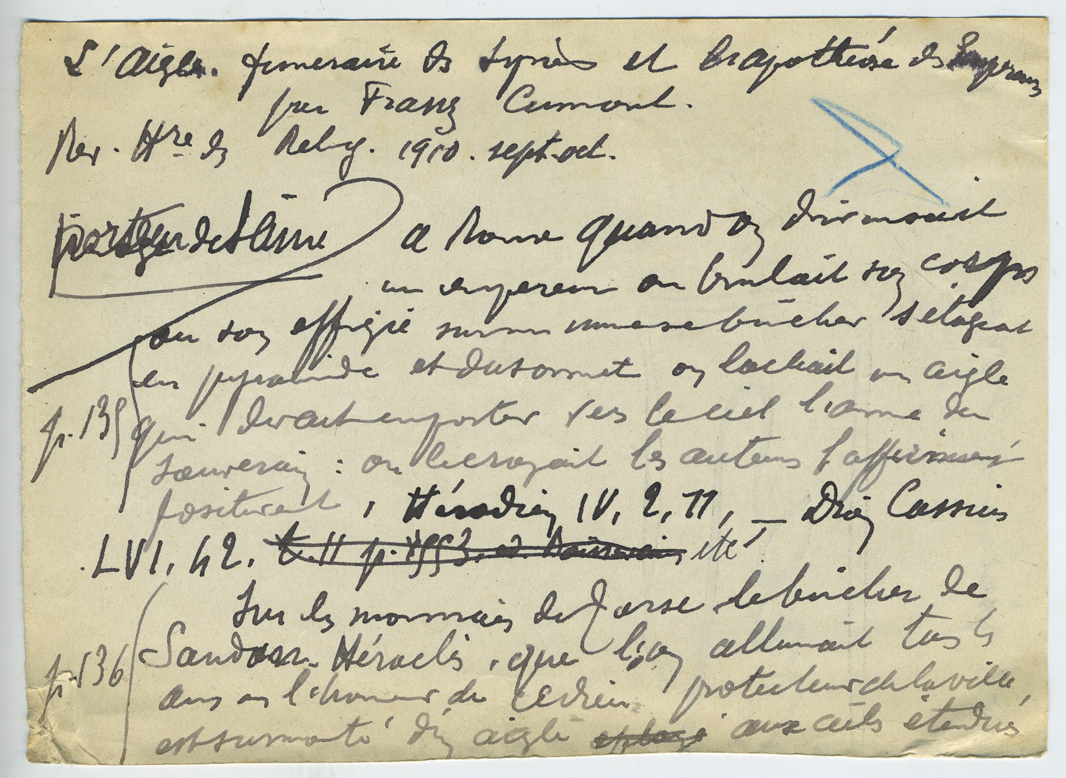 L'Aigle funéraire des Syriens et l'apothéose des Empereurs
par Franz Cumont.
Rev. Hre des Relig. 1910. sept-oct.
a Rome quand on divinisait
un empereur on brulait son corps
ou son effigie sur un immense bûcher s'étageant
en pyramide et du sommet on lachait un aigle
p. 135 qui devait emporter vers le ciel l'ame du
souverain : on le croyait les auteurs l'affirment
positivement, Hérodien IV, 2, 11, _ Dion Cassius
LVI. 42. t. II p. 553. ed. Boissevain, cité
Sur les monnaies de Tarse le bûcher de
Sandan-Héraclès, que l'on allumait tous les
p. 136 ans en l'honneur de ce dieu protecteur de la ville,
est surmonté d'un aigle aux ails étendues